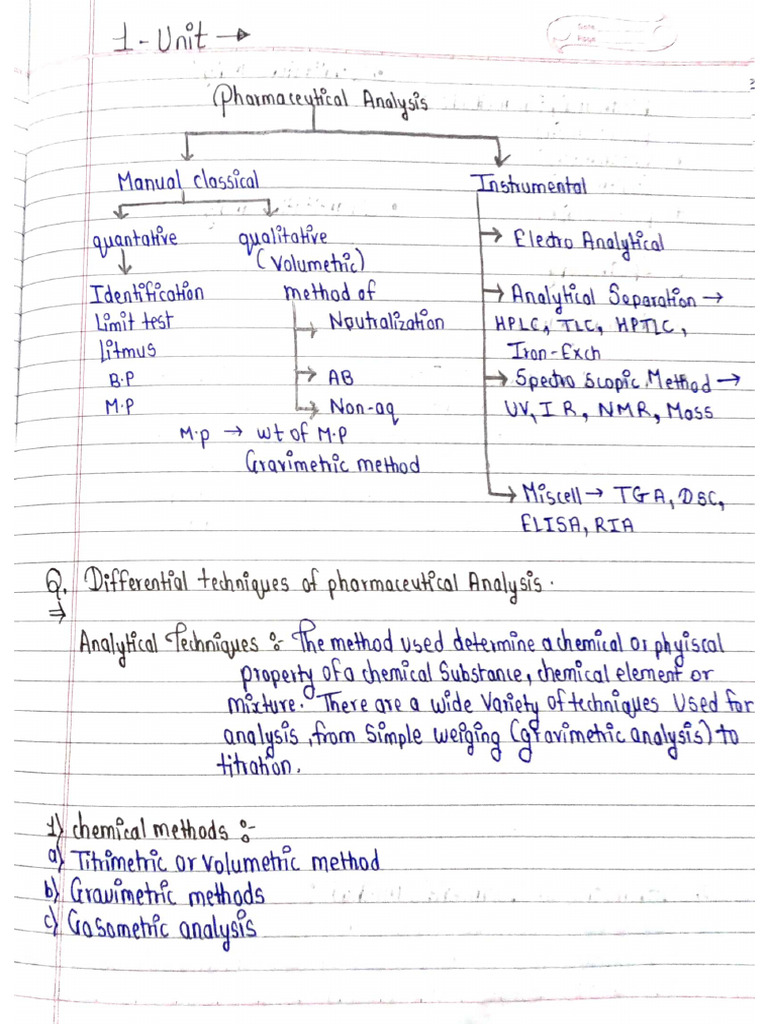 1 - Unit →
Date
Page
Pharmaceutical Analysis
Manual classical
Instrumental
quantative
qualitative
(Volumetric)
→ Electro Analytical
Identification
method of
→ Analytical Separation →
Limit test
→ Neutralization
HPLC, TLC, HPTLC,
Litmus
Iron-Exch
B.P
→ AB
→ Spectro Scopic Method →
M.P
→ Non-aq
UV, IR, NMR, Mass
M.p → wt of M.P
Gravimetric method
→ Miscell → TGA, DSC,
ELISA, RIA
Q. Differential techniques of pharmaceutical Analysis.
⇒
Analytical Techniques :- The method used determine a chemical or phyiscal
property of a chemical Substance, chemical element or
mixture. There are a wide Variety of techniques Used for
analysis, from Simple weiging (gravimetric analysis) to
titration.
1) chemical methods :-
a) Titrimetric or volumetric method
b) Gravimetric methods
c) Gasometric analysis